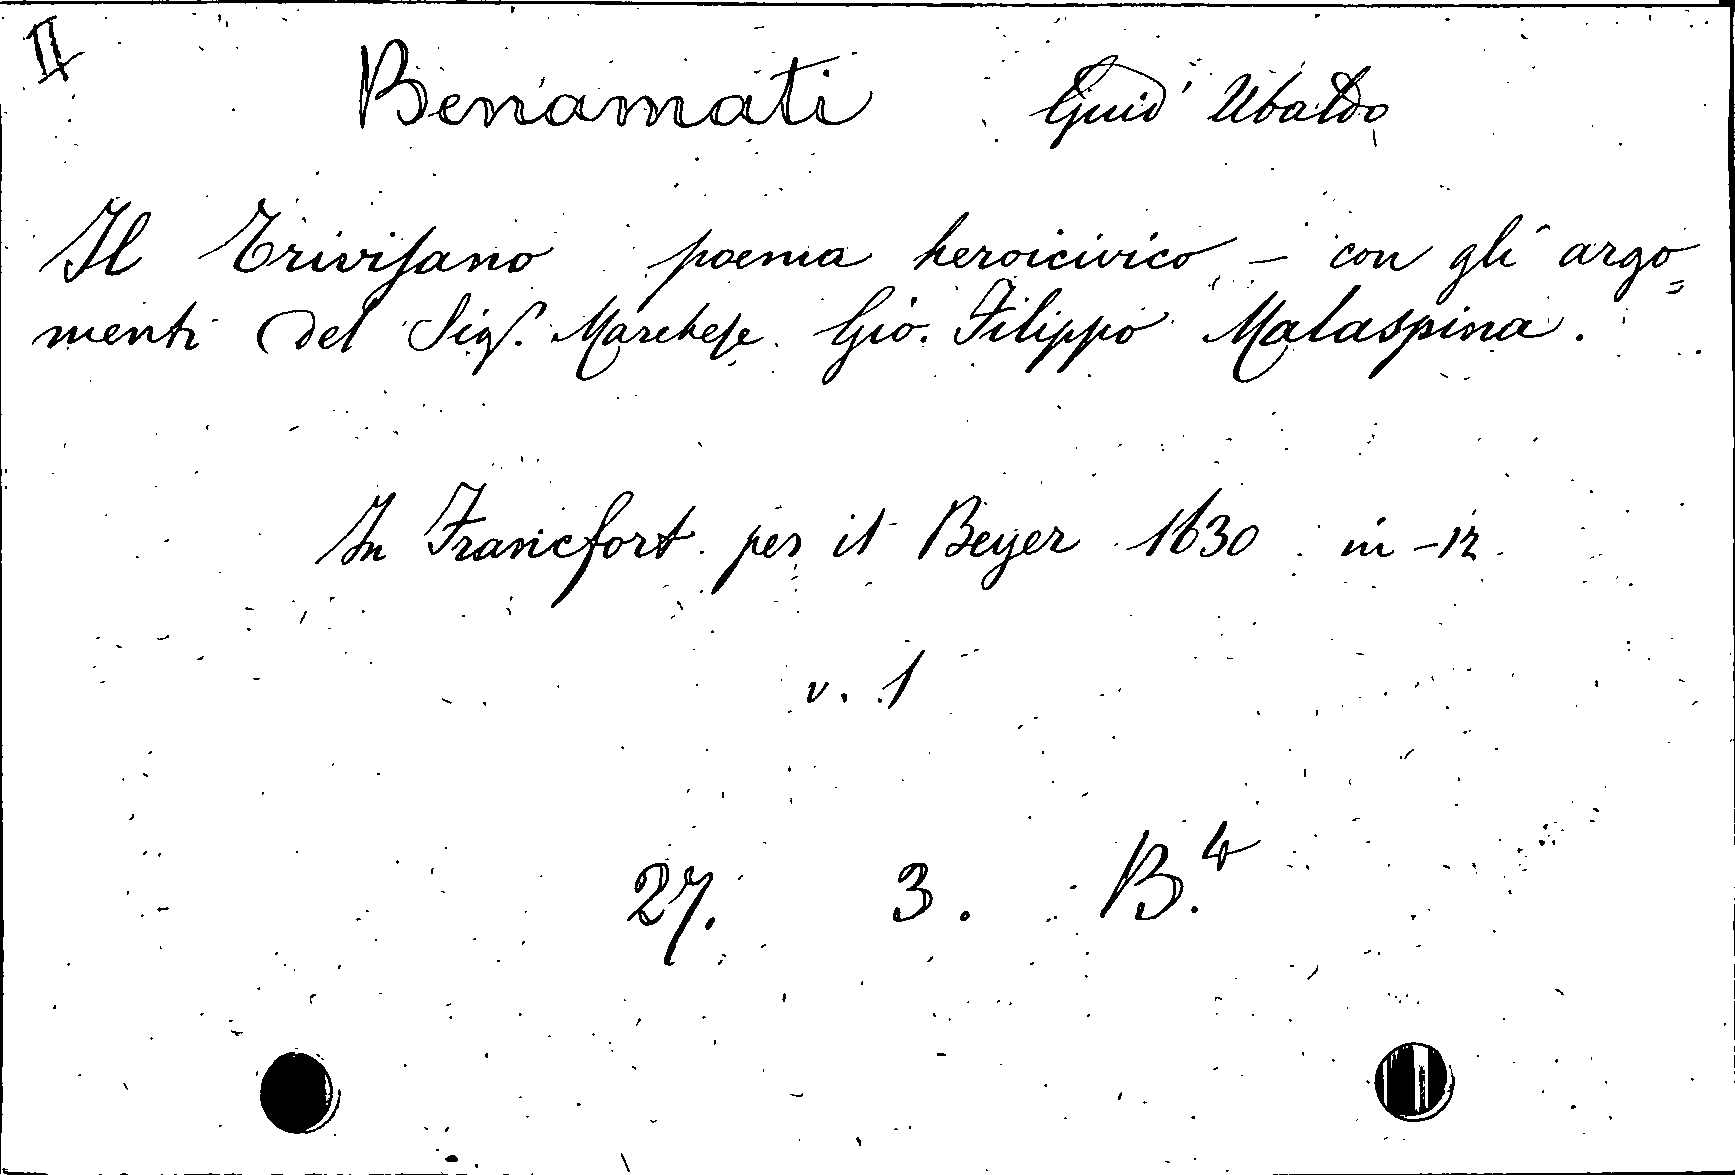 II
Benamati Guid' Ubaldo
Il Trivisano poema heroicivico - con gli argo=
menti del Sigr. Marchese Gio. Filippo Malaspina.
In Francfort per il Beyer 1630 in-12
v. 1
27. 3. B.4